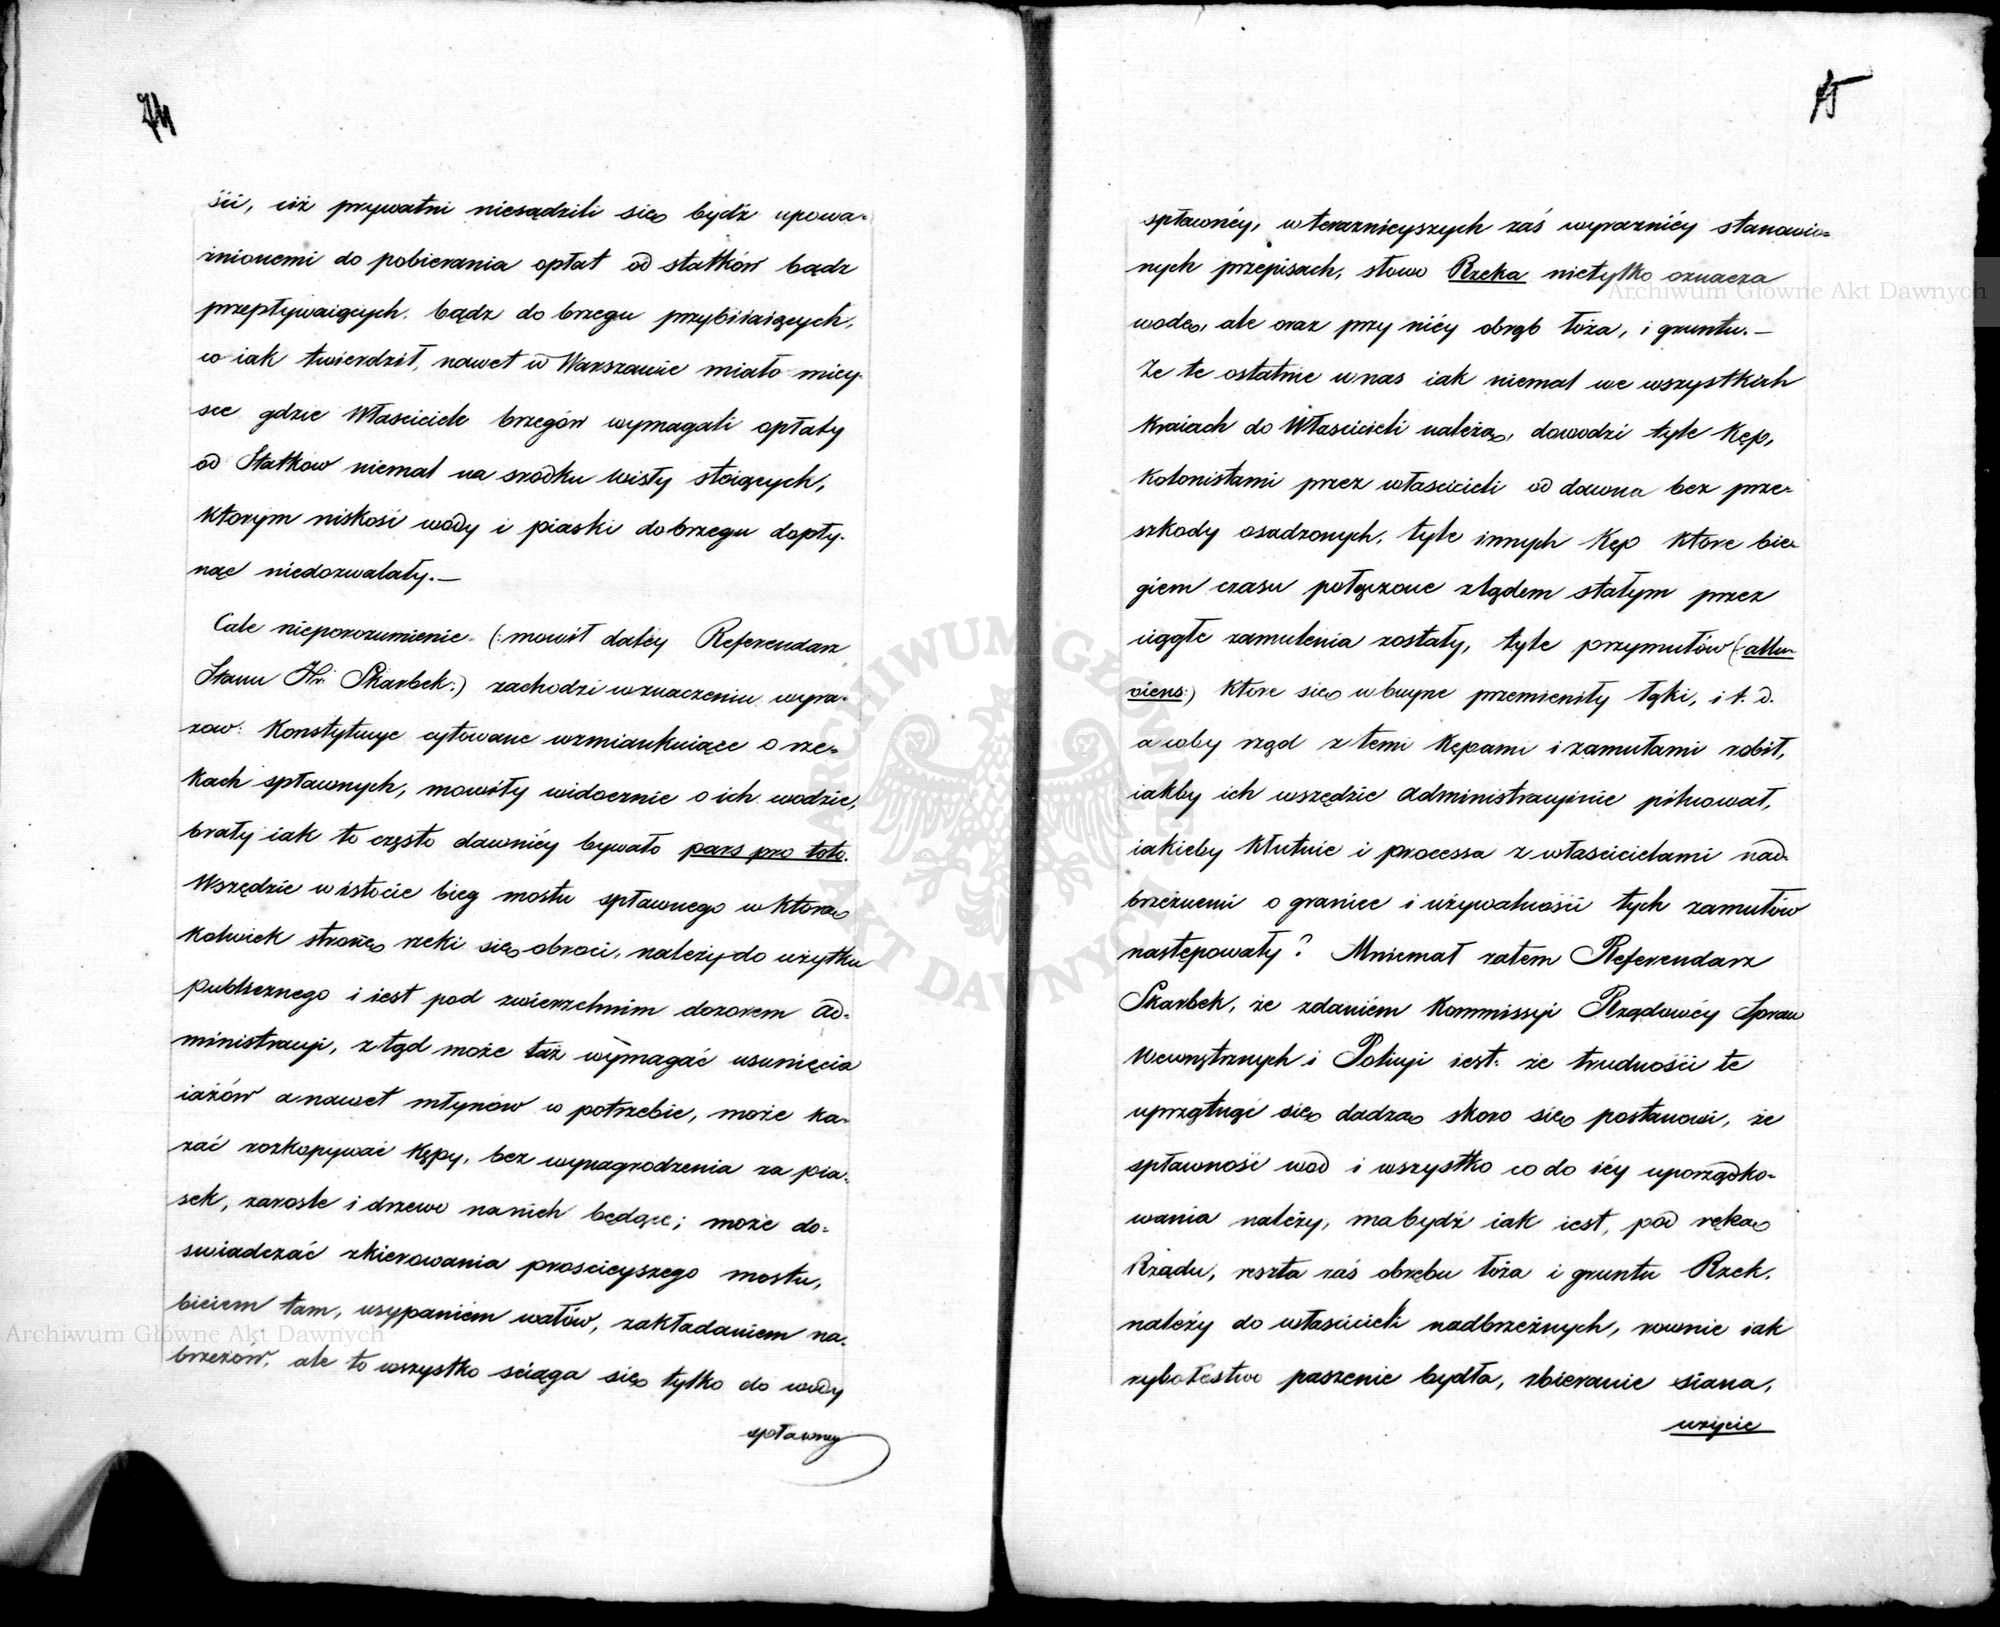 74
ści, iż prywatni niesądzili się bydź upowa-
żnionemi do pobierania opłat od statków bądz
przepływaiących, bądz do brzegu przybiiaiących,
co iak twierdził, nawet w Warszawie miało miey-
sce gdzie Właściciele brzegów wymagali opłaty
od Statków niemal na srodku Wisły stoiących,
którym niskość wody i piaski do brzegu dopły-
nąc niedozwalały.—
Całe nieporozumienie (: mówił daléy Referendarz
Stanu Hr: Skarbek:) zachodzi w znaczeniu wyra-
zow: Konstytucye cytowane wzmiankuiące o rze-
kach spławnych, mówiły widocznie o ich wodzie,
brały iak to często dawniéy bywało pars pro toto.
Wszędzie w istocie bieg mostu spławnego w któraَ
kolwiek stronę rzeki się obroci, należy do użytku
publicznego i iest pod zwierzchnim dozorem Ad-
ministracyi, z tąd może też wymagać usunięcia
iazów a nawet młynów w potrzebie, może ka-
zać rozkopywać Kępy, bez wynagrodzenia za pia-
sek, zarosle i drzewo na nich będące; może do-
swiadczać zkierowania prościeyszego mostu,
biciem tam, usypaniem wałów, zakładaniem na-
brzeżów, ale to wszystko ściąga się tylko do wody
spławney
75
spławnéy, w teraznieyszych zaś wyrazniéy stanowio-
nych przepisach, słowo Rzeka nietylko oznacza
wodę, ale oraz przy niéy obręb łoża, i gruntu.—
Że te ostatnie u nas iak niemal we wszystkich
Kraiach do Właścicieli należą, dowodzi tyle Kęp,
Kolonistami przez właścicieli od dawna bez prze-
szkody osadzonych, tyle innych Kęp które bie-
giem czasu połączone z lądem stałym przez
ciągłe zamulenia zostały, tyle przymułów (:allu-
viens:) które się w buyne przemieniły łąki, i t. d.
a coby rząd z temi Kępami i zamułami robił,
iakby ich wszędzie administracyinie pilnował,
iakieby kłutnie i processa z właścicielami nad-
brzeżnemi o granice i używalności tych zamułów
następowały? Mniemał zatem Referendarz
Skarbek, że zdaniém Kommissyi Rządowéy Spraw
Wewnętrznych i Policyi iest: że trudności te
uprzątnąć się dadzą skoro się postanowi, że
spławność wód i wszystko co do iéy uporządko-
wania należy, ma bydź iak iest, pod ręką
Rządu, reszta zaś obrębu łoża i gruntu Rzek,
należy do właścicieli nadbrzeżnych, rownie iak
rybołostwo paszenie bydła, zbieranie siana,
użycie
Archiwum Główne Akt Dawnych
Archiwum Główne Akt Dawnych
ARCHIWUM GŁÓWNE AKT DAWNYCH